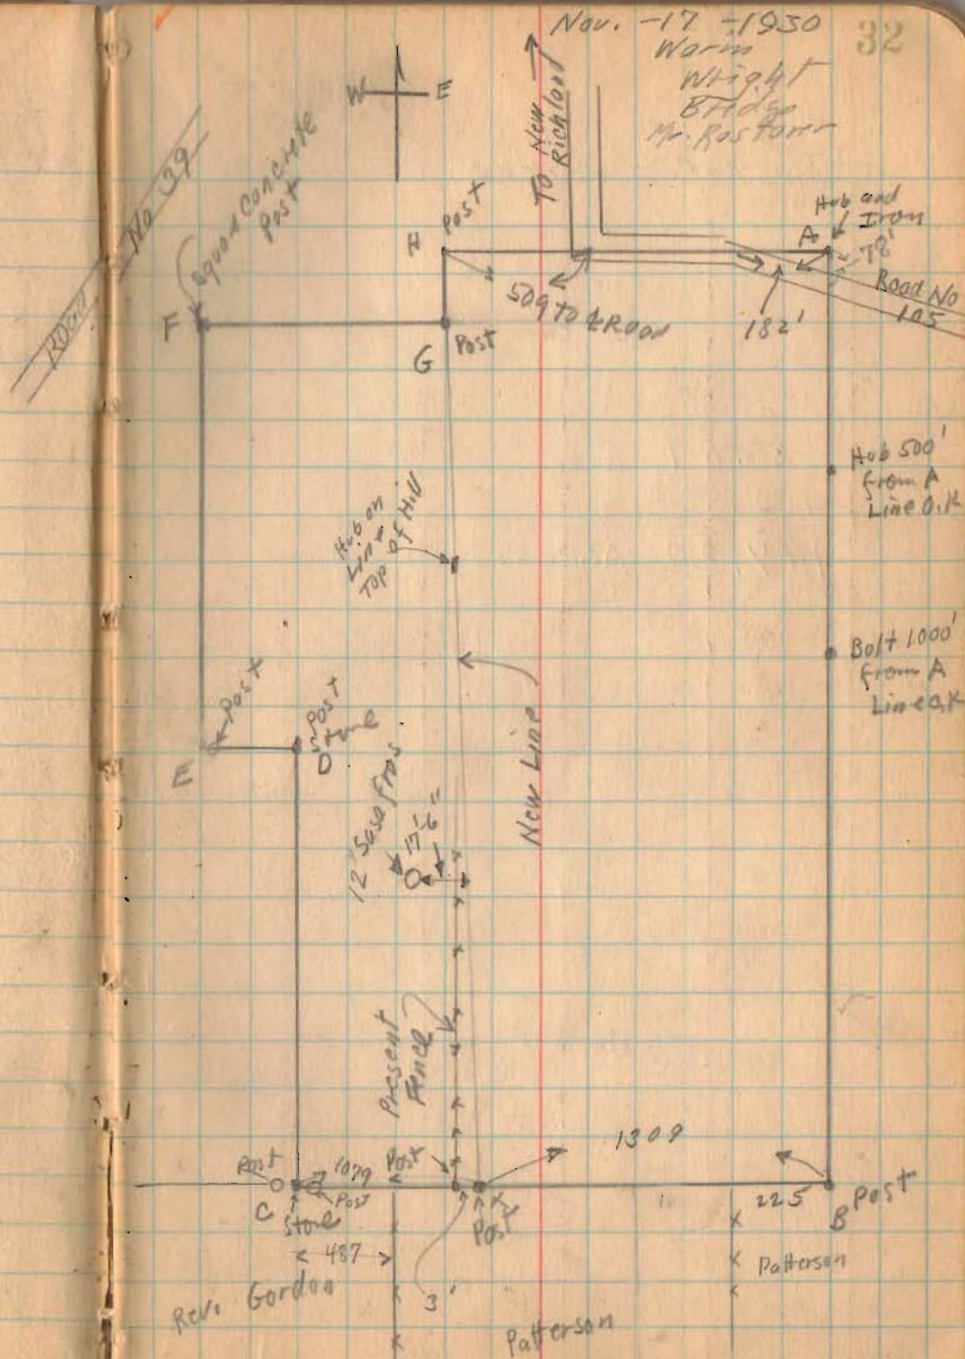 Nov. -17 -1930
32
Warm
Wright
Bridge
Mr.
W E
To New
Richland
Road No 39
Square Concrete
Post
H
Post
A
Hub and
Iron
78'
Road No
105
F
509 to ⅊ Road
182'
G
Post
Hub 500'
from A
Line O.K
Hub on
Line
Top of Hill
Bolt 1000'
from A
Line O.K
Post
Post
Stone
E
D
New Line
12" Sasafras
17'-6"
Present
Fence
1309
Post
1079
Post
Post
C
Stone
Post
225
B
Post
487
3'
Patterson
Rev. Gordon
Patterson